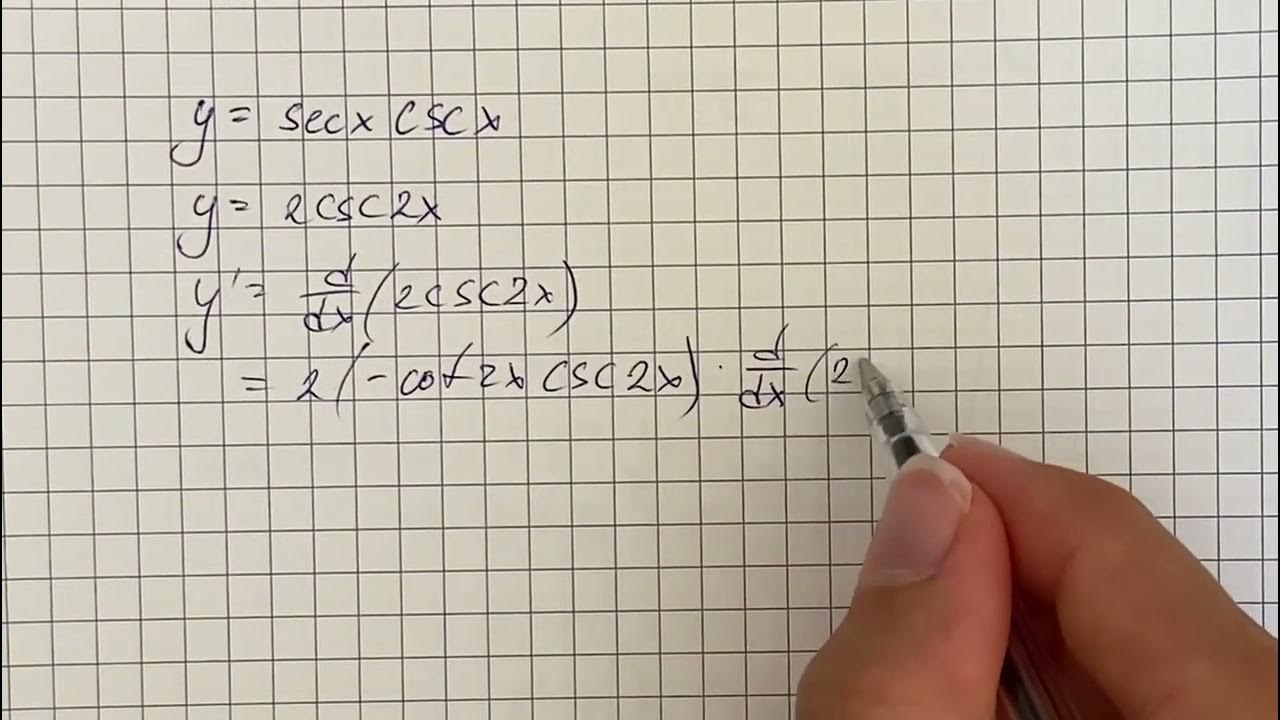 y = secx cscx
y = 2csc2x
y' = d/dx (2csc2x)
= 2(-cot2x csc2x) · d/dx (2